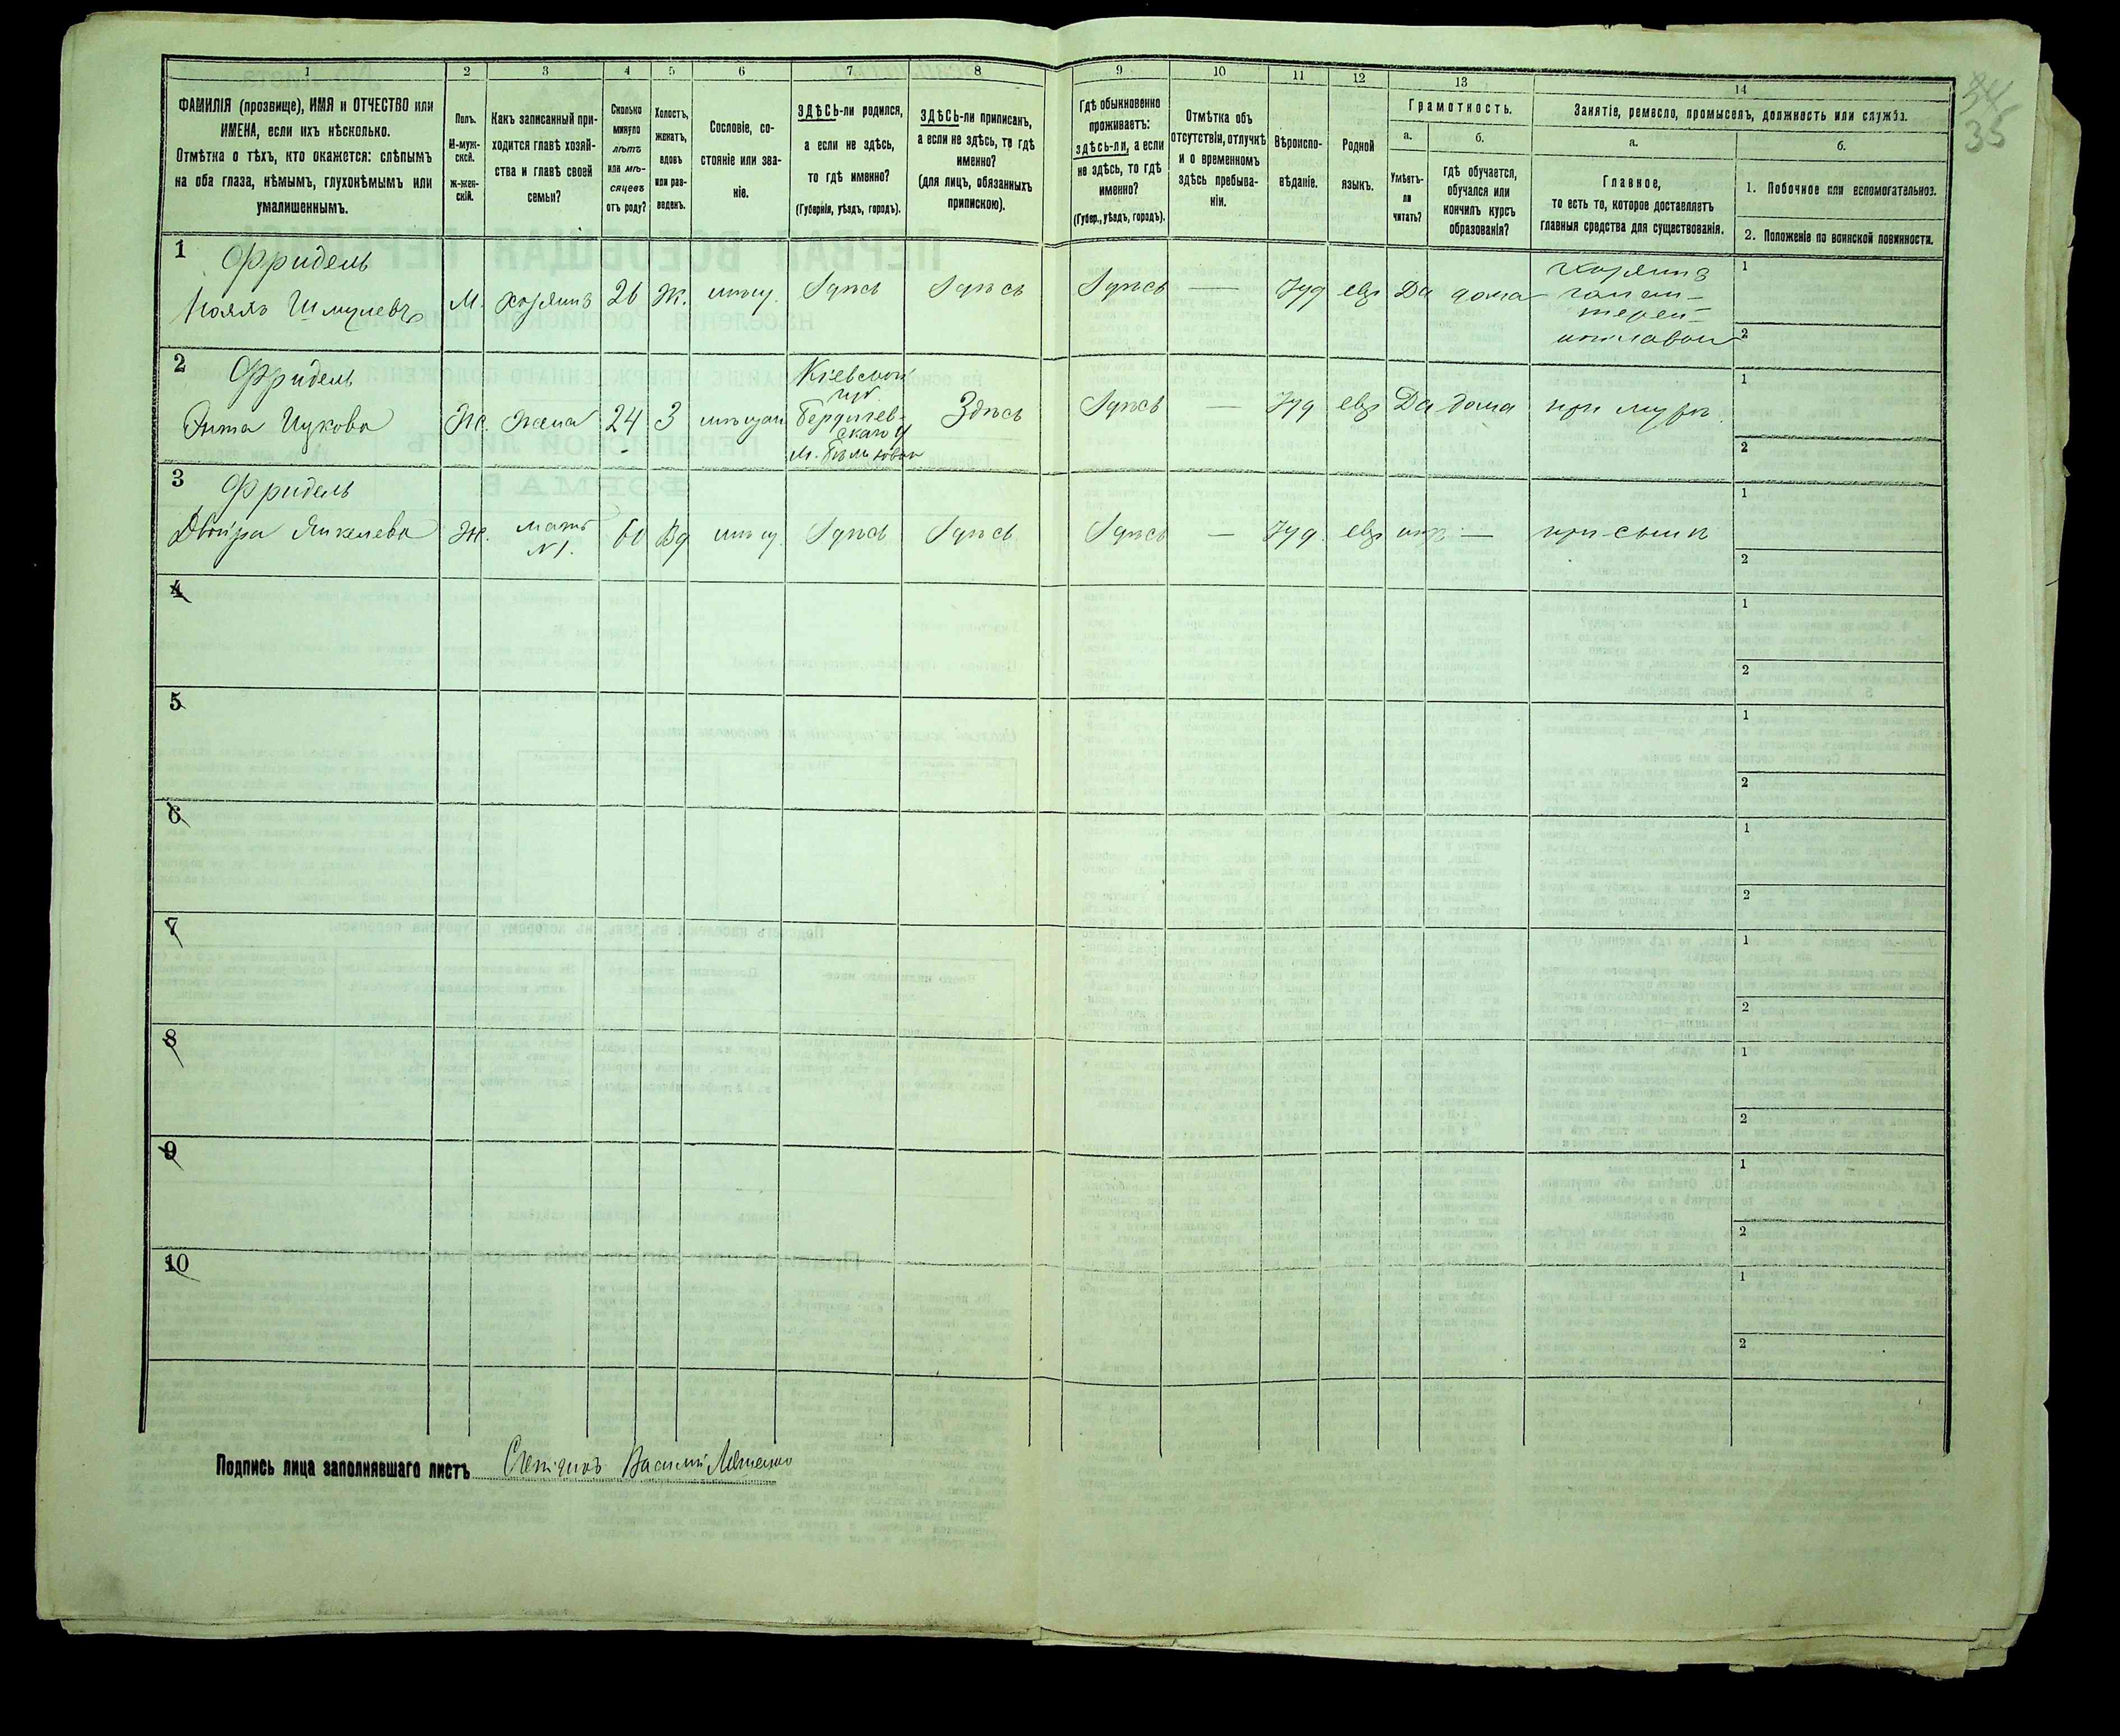 34
35
1 2 3 4 5 6 7 8 9 10 11 12 13 14
ФАМИЛІЯ (прозвище), ИМЯ и ОТЧЕСТВО или
ИМЕНА, если ихъ нѣсколько.
Отмѣтка о тѣхъ, кто окажется: слѣпымъ
на оба глаза, нѣмымъ, глухонѣмымъ или
умалишеннымъ.
Полъ.
М-муж-
ской.
ж-жен-
скій.
Какъ записанный при-
ходится главѣ хозяй-
ства и главѣ своей
семьи?
Сколько
минуло
лѣтъ
или мѣ-
сяцевъ
отъ роду?
Холостъ,
женатъ,
вдовъ
или раз-
веденъ.
Сословіе, со-
стояніе или зва-
ніе.
ЗДѢСЬ-ли родился,
а если не здѣсь,
то гдѣ именно?
(Губернія, уѣздъ, городъ).
ЗДѢСЬ-ли приписанъ,
а если не здѣсь, то гдѣ
именно?
(для лицъ, обязанныхъ
припискою).
Гдѣ обыкновенно
проживаетъ:
здѣсь-ли, а если
не здѣсь, то гдѣ
именно?
(Губер., уѣздъ, городъ).
Отмѣтка объ
отсутствіи, отлучкѣ
и о временномъ
здѣсь пребыва-
ніи.
Вѣроиспо-
вѣданіе.
Родной
языкъ.
Грамотность.
а. б.
Умѣетъ-
ли
читать?
гдѣ обучается,
обучался или
кончилъ курсъ
образованія?
Занятіе, ремесло, промыселъ, должность или служба.
а. б.
Главное,
то есть то, которое доставляетъ
главныя средства для существованія.
1. Побочное или вспомогательное.
2. Положеніе по воинской повинности.
1 Фридель
Шмулевъ М. хозяинъ 26 Ж. мѣщ. Здѣсь Здѣсь Здѣсь — Іуд евр Да дома хозяинъ
галан-
терей-
1
2
2 Фридель
Ицкова Ж. жена 24 З мѣщан
Кіевской
губ.
Бердичев-
скаго у
м.
Здѣсь Здѣсь — Іуд евр Да дома при мужѣ
1
2
3 Фридель
Двойра Янкелева Ж. мать
№1. 60 Вд мѣщ. Здѣсь Здѣсь Здѣсь — Іуд. евр нѣтъ — при сынѣ
1
2
4
1
2
5
1
2
6
1
2
7
1
2
8
1
2
9
1
2
10
1
2
Подпись лица заполнявшаго листъ Василій